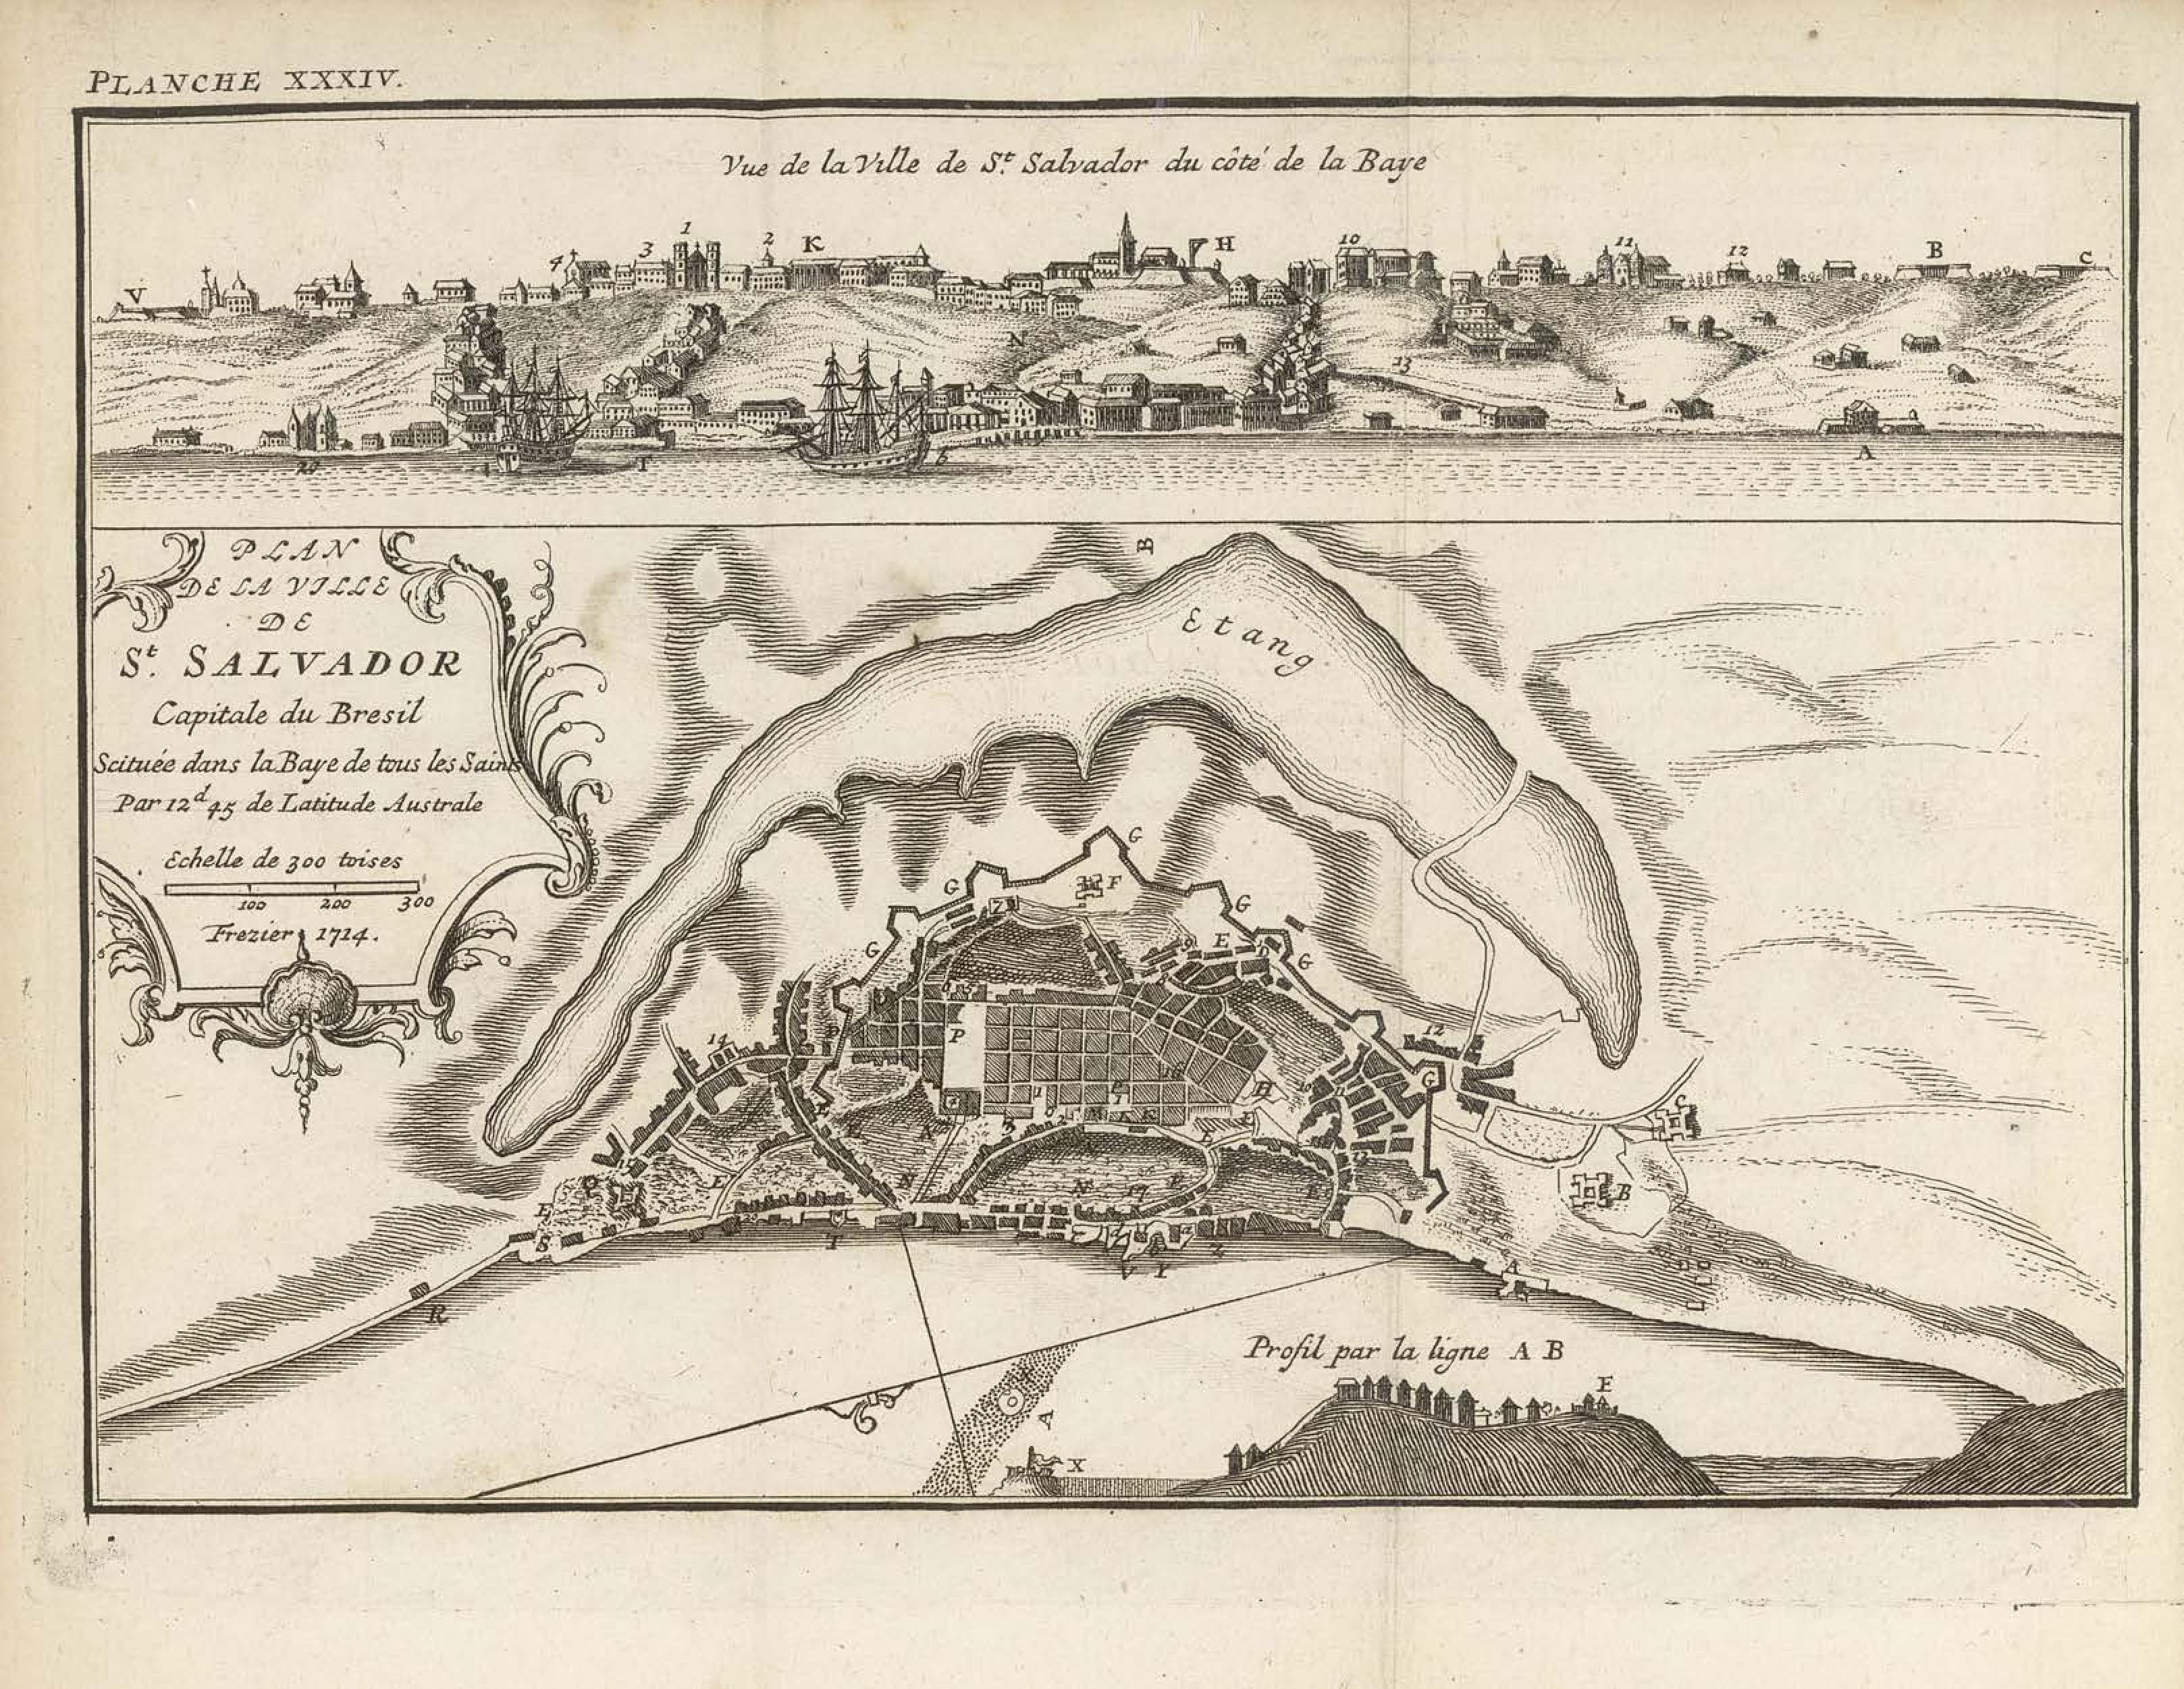 PLANCHE XXXIV.
Vue de la Ville de S.t Salvador du côté de la Baye
V
4
3
1
2
K
H
10
11
12
B
C
N
13
20
T
b
A
PLAN
DE LA VILLE
DE
S.t SALVADOR
Capitale du Bresil
Scituée dans la Baye de tous les Saints
Par 12d 45 de Latitude Australe
Echelle de 300 toises
100 200 300
Frezier 1714.
B
Etang
G
G
F
G
G
E
G
P
14
12
G
H
C
B
N
E
E
S
R
T
V
Y
Z
A
A
Profil par la ligne A B
E
X